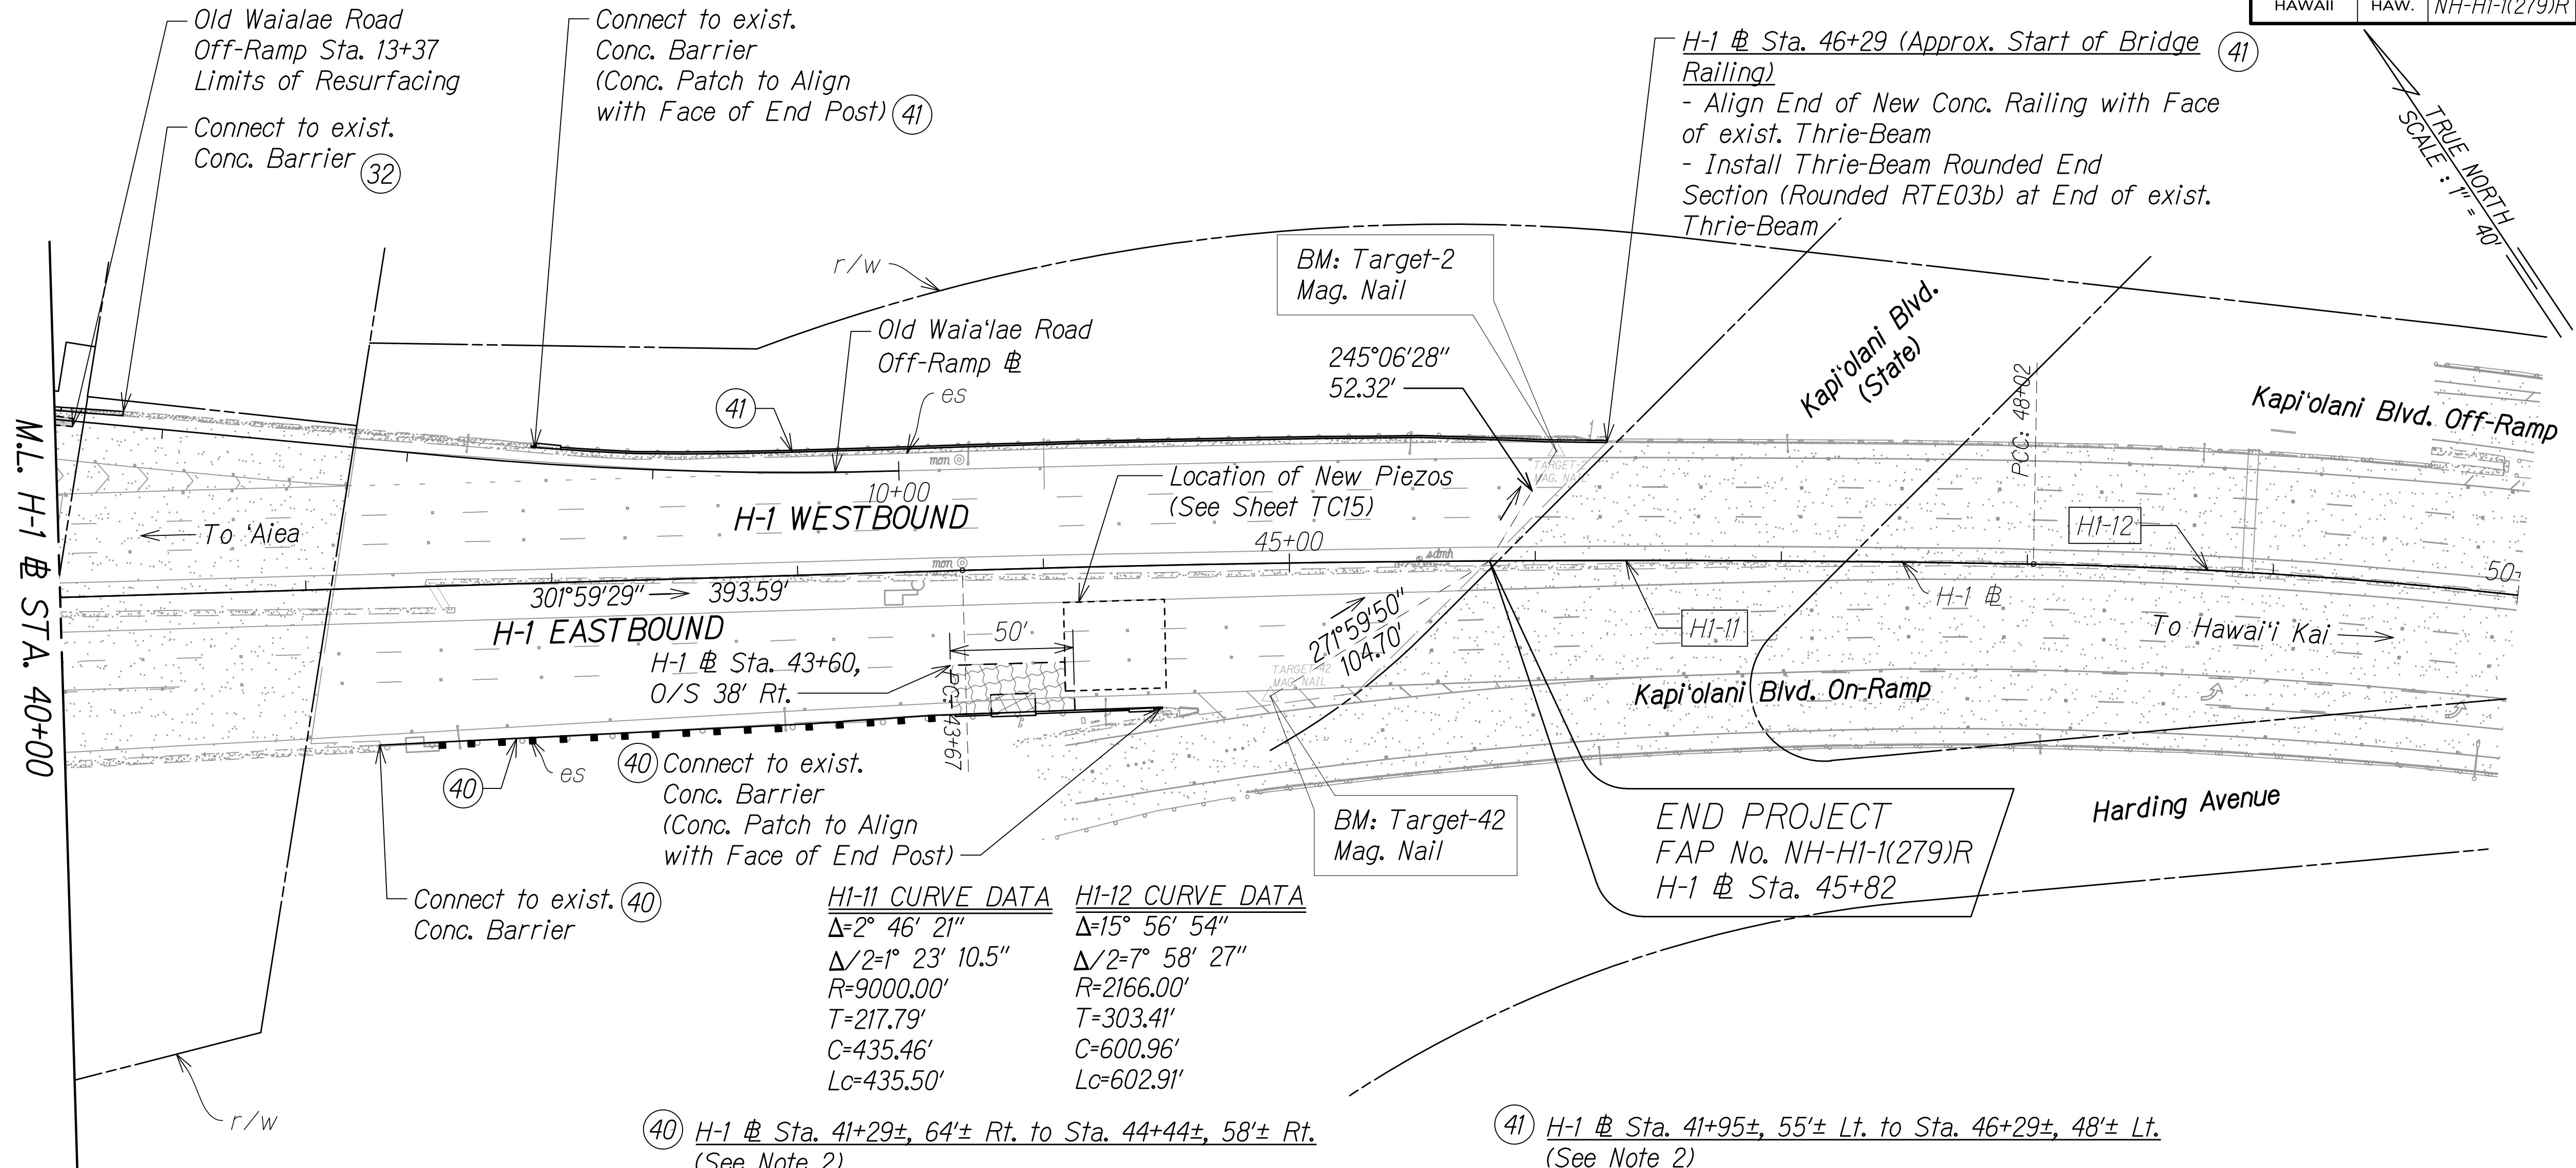 HAWAII HAW. NH-H1-1(279)R
Old Waialae Road
Off-Ramp Sta. 13+37
Limits of Resurfacing
Connect to exist.
Conc. Barrier 32
Connect to exist.
Conc. Barrier
(Conc. Patch to Align
with Face of End Post) 41
H-1 ℄ Sta. 46+29 (Approx. Start of Bridge 41
Railing)
- Align End of New Conc. Railing with Face
of exist. Thrie-Beam
- Install Thrie-Beam Rounded End
Section (Rounded RTE03b) at End of exist.
Thrie-Beam
TRUE NORTH
SCALE : 1" = 40'
r/w
BM: Target-2
Mag. Nail
Old Waia'lae Road
Off-Ramp ℄
es
41
245°06'28"
52.32'
Kapi'olani Blvd.
(State)
PCC: 48+02
Kapi'olani Blvd. Off-Ramp
mon
TARGET-2
MAG. NAIL
10+00
Location of New Piezos
(See Sheet TC15)
H-1 WESTBOUND
To 'Aiea
45+00
sdmh
mon
H1-12
50+
M.L. H-1 ℄ STA. 40+00
301°59'29" 393.59'
H-1 EASTBOUND
50'
H-1 ℄ Sta. 43+60,
O/S 38' Rt.
PC: 43+67
271°59'50"
104.70'
H1-11
H-1 ℄
To Hawai'i Kai
TARGET-42
MAG. NAIL
Kapi'olani Blvd. On-Ramp
40
es
40 Connect to exist.
Conc. Barrier
(Conc. Patch to Align
with Face of End Post)
BM: Target-42
Mag. Nail
END PROJECT
FAP No. NH-H1-1(279)R
H-1 ℄ Sta. 45+82
Harding Avenue
Connect to exist. 40
Conc. Barrier
H1-11 CURVE DATA
Δ=2° 46' 21"
Δ/2=1° 23' 10.5"
R=9000.00'
T=217.79'
C=435.46'
Lc=435.50'
H1-12 CURVE DATA
Δ=15° 56' 54"
Δ/2=7° 58' 27"
R=2166.00'
T=303.41'
C=600.96'
Lc=602.91'
r/w
40 H-1 ℄ Sta. 41+29±, 64'± Rt. to Sta. 44+44±, 58'± Rt.
(See Note 2)
41 H-1 ℄ Sta. 41+95±, 55'± Lt. to Sta. 46+29±, 48'± Lt.
(See Note 2)